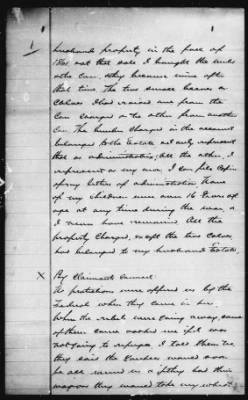 1
husband property in the fall of
1865 at that sale I bought the mule
the cow. They became mine after
that time. The two small
Calves I had raised one from the
Cow charged & the other from another
Cow. The charged in the account
belonged to the Estate and only represent
that as administratrix, All the other, I
represent as my own, I can file copies
of my letters of administration. None
of my children were over 16 years of
age at any time during the war &
I never have remarried. All the
property charged, except the two Calves,
had belonged to my husband Estate
X By Claimants Counsel
No protection were offered us by the
Federal when they came in here.
When the rebels were going away, some
of them came asked me if I was
not going to refugee. I told them no,
they said the Yankees would soon
be all around in & if they had their
wagons they would take my wheat